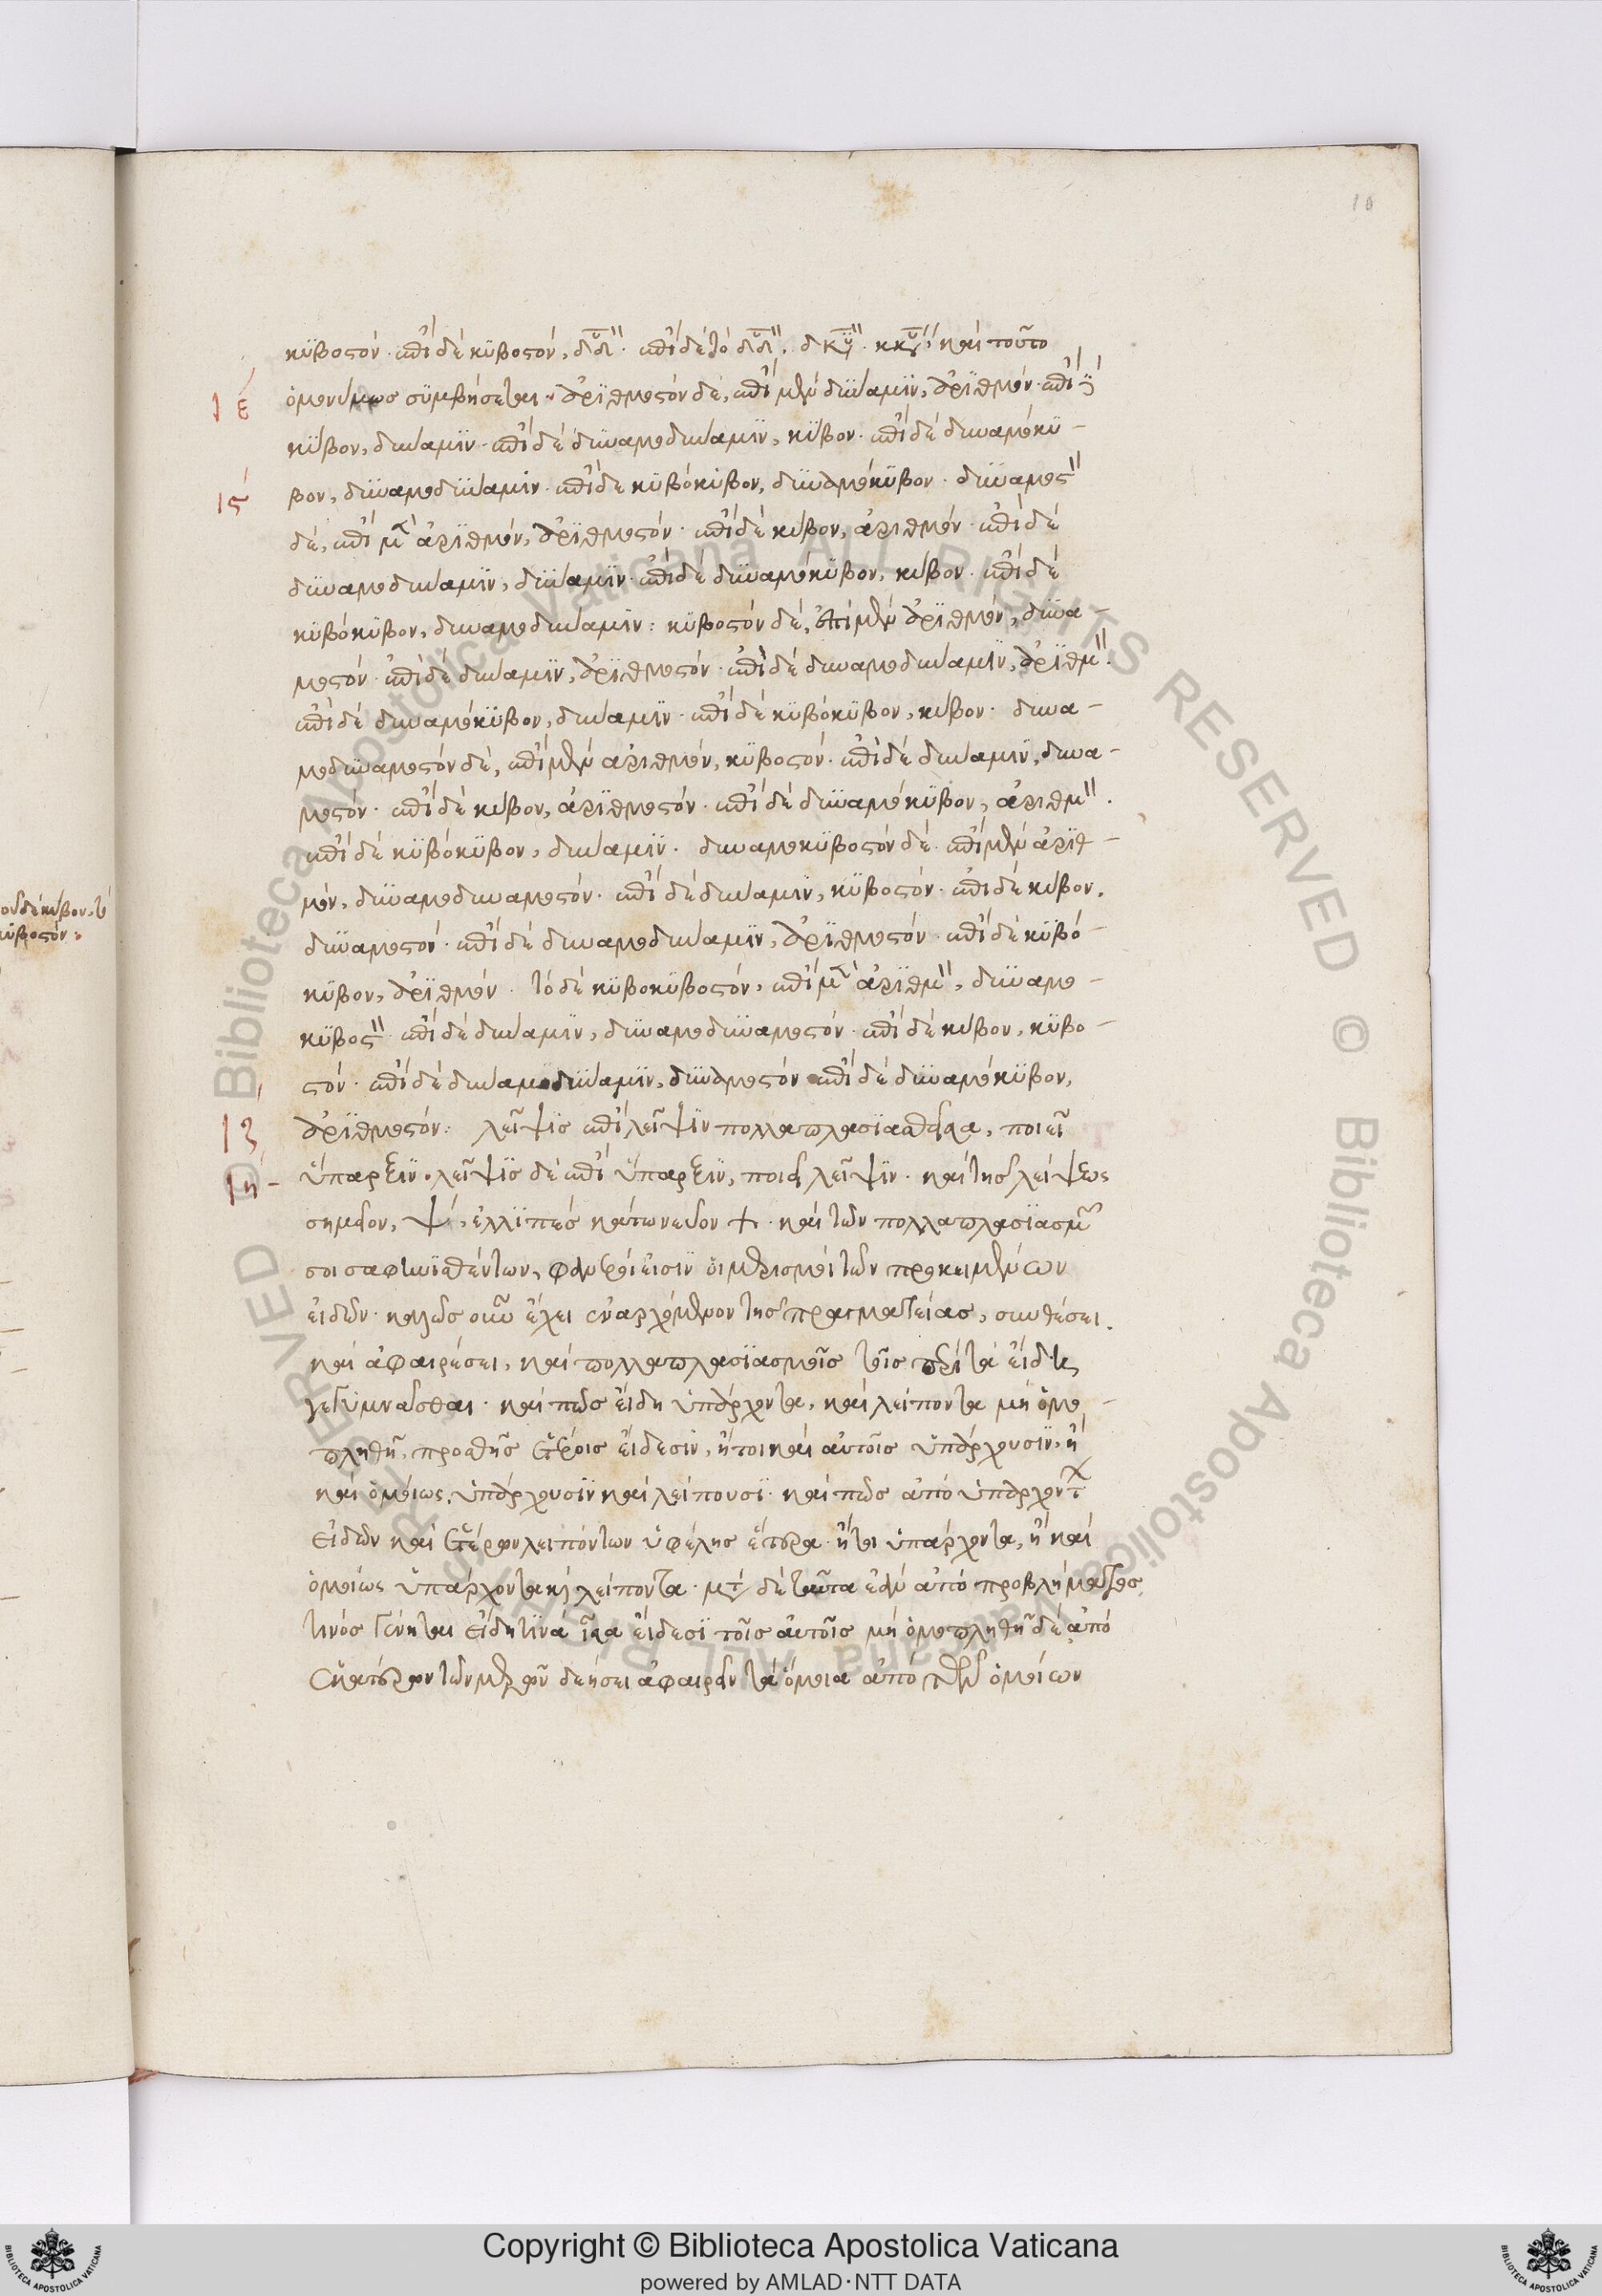 10
κϋβοστόν · ἐπὶ δὲ κϋβοστόν, δδ̅ῡ′′ · ἐπὶ δὲ τὸ δδ̅ῡ′′. δκ̅ῡ′′ · κκ̅ῡ′′ · καὶ τοῦτο
ιε ὁμονύμως σϋμβήσεται · ἀρϊθμοστὸν δὲ, ἐπὶ μὲν δύναμϊν, ἀρϊθμόν · ἐπὶ
κύβον, δύναμϊν · ἐπὶ δὲ δϋναμοδύναμϊν, κύβον · ἐπὶ δὲ δυναμόκϋ-
ιϛ βον, δϋναμοδύναμιν · ἐπὶ δὲ κϋβόκϋβον, δϋναμόκϋβον · δϋναμοστ′′
δὲ, ἐπὶ μὲν ἀρϊθμόν, ἀρϊθμοστόν · ἐπὶ δὲ κύβον, ἀριθμόν · ἐπὶ δὲ
δϋναμοδύναμϊν, δύναμϊν · ἐπὶ δὲ δϋναμόκϋβον, κύβον · ἐπὶ δὲ
κϋβόκϋβον, δυναμοδύναμιν : κϋβοστὸν δὲ, ἐπὶ μὲν ἀρϊθμόν, δϋνα-
μοστόν · ἐπὶ δὲ δύναμϊν, ἀρϊθμοστόν · ἐπὶ δὲ δυναμοδύναμϊν, ἀρϊθμ′′.
ἐπὶ δὲ δυναμόκϋβον, δύναμϊν · ἐπὶ δὲ κϋβόκϋβον, κύβον · δυνα-
μοδϋναμοστὸν δὲ, ἐπὶ μὲν ἀριθμόν, κϋβοστόν · ἐπὶ δὲ δύναμιν, δυνα-
μοστόν · ἐπὶ δὲ κύβον, ἀρϊθμοστόν · ἐπὶ δὲ δϋναμόκϋβον, ἀριθμ′′.
ἐπὶ δὲ κϋβόκϋβον, δύναμϊν · δυναμοκϋβοστὸν δὲ ἐπὶ μὲν ἀριθ-
μόν, δϋναμοδυναμοστόν · ἐπὶ δὲ δύναμϊν, κϋβοστόν · ἐπὶ δὲ κύβον,
δϋναμοστόν · ἐπὶ δὲ δυναμοδύναμϊν, ἀρϊθμοστόν · ἐπὶ δὲ κϋβό-
κϋβον, ἀρϊθμόν · τὸ δὲ κϋβοκϋβοστόν, ἐπὶ μὲν ἀρϊθμ′′, δϋναμο-
κϋβοστ′′ · ἐπὶ δὲ δύναμϊν, δϋναμοδϋναμοστόν · ἐπὶ δὲ κύβον, κϋβο-
στόν · ἐπὶ δὲ δυναμοδύναμϊν, δϋναμοστόν · ἐπὶ δὲ δϋναμόκϋβον,
ιζ ἀρϊθμοστόν : λεῖψϊς ἐπὶ λεῖψϊν πολλαπλασϊασθεῖσα, ποιεῖ
ιη ὕπαρξϊν · λεῖψϊς δὲ ἐπὶ ὕπαρξϊν, ποιεῖ λεῖψϊν · καὶ τῆς λείψεως
σημεῖον, ψ, ἐλλϊπὲς κάτω νεῦον · καὶ τῶν πολλαπλασϊασμῶν
σοι σαφηνϊσθέντων, φανεροί εἰσϊν οἱ μερισμοὶ τῶν προκειμένων
εἰδῶν · καλῶς οὖν ἔχει ἐναρχόμενον τῆς πραγματείας, συνθέσει,
καὶ ἀφαιρέσει, καὶ πολλαπλασϊασμοῖς τοῖς περὶ τὰ εἴδη
γεγυμνάσθαι · καὶ πῶς εἴδη ὑπάρχοντα, καὶ λείποντα μὴ ὁμο-
πληθῆ, προσθῇς ἑτέροις εἴδεσϊν, ἤτοι καὶ αὐτοῖς ὑπάρχουσϊν, ἢ
καὶ ὁμοίως ὑπάρχουσϊν καὶ λείπουσϊ · καὶ πῶς ἀπὸ ὑπαρχόντων
εἰδῶν καὶ ἑτέρων λειπόντων ὑφέλῃς ἕτερα ἤτοι ὑπάρχοντα, ἢ καὶ
ὁμοίως ὑπάρχοντα κὶ λείποντα · μετὰ δὲ ταῦτα ἐὰν ἀπὸ προβλήματος
τινὸς γένηται εἴδη τινὰ ἴσα εἴδεσϊ τοῖς αὐτοῖς μὴ ὁμοπληθῆ δὲ ἀπὸ
ἑκατέρων τῶν μερῶν δεήσει ἀφαιρεῖν τὰ ὅμοια ἀπὸ τῶν ὁμοίων
Copyright © Biblioteca Apostolica Vaticana
powered by AMLAD·NTT DATA